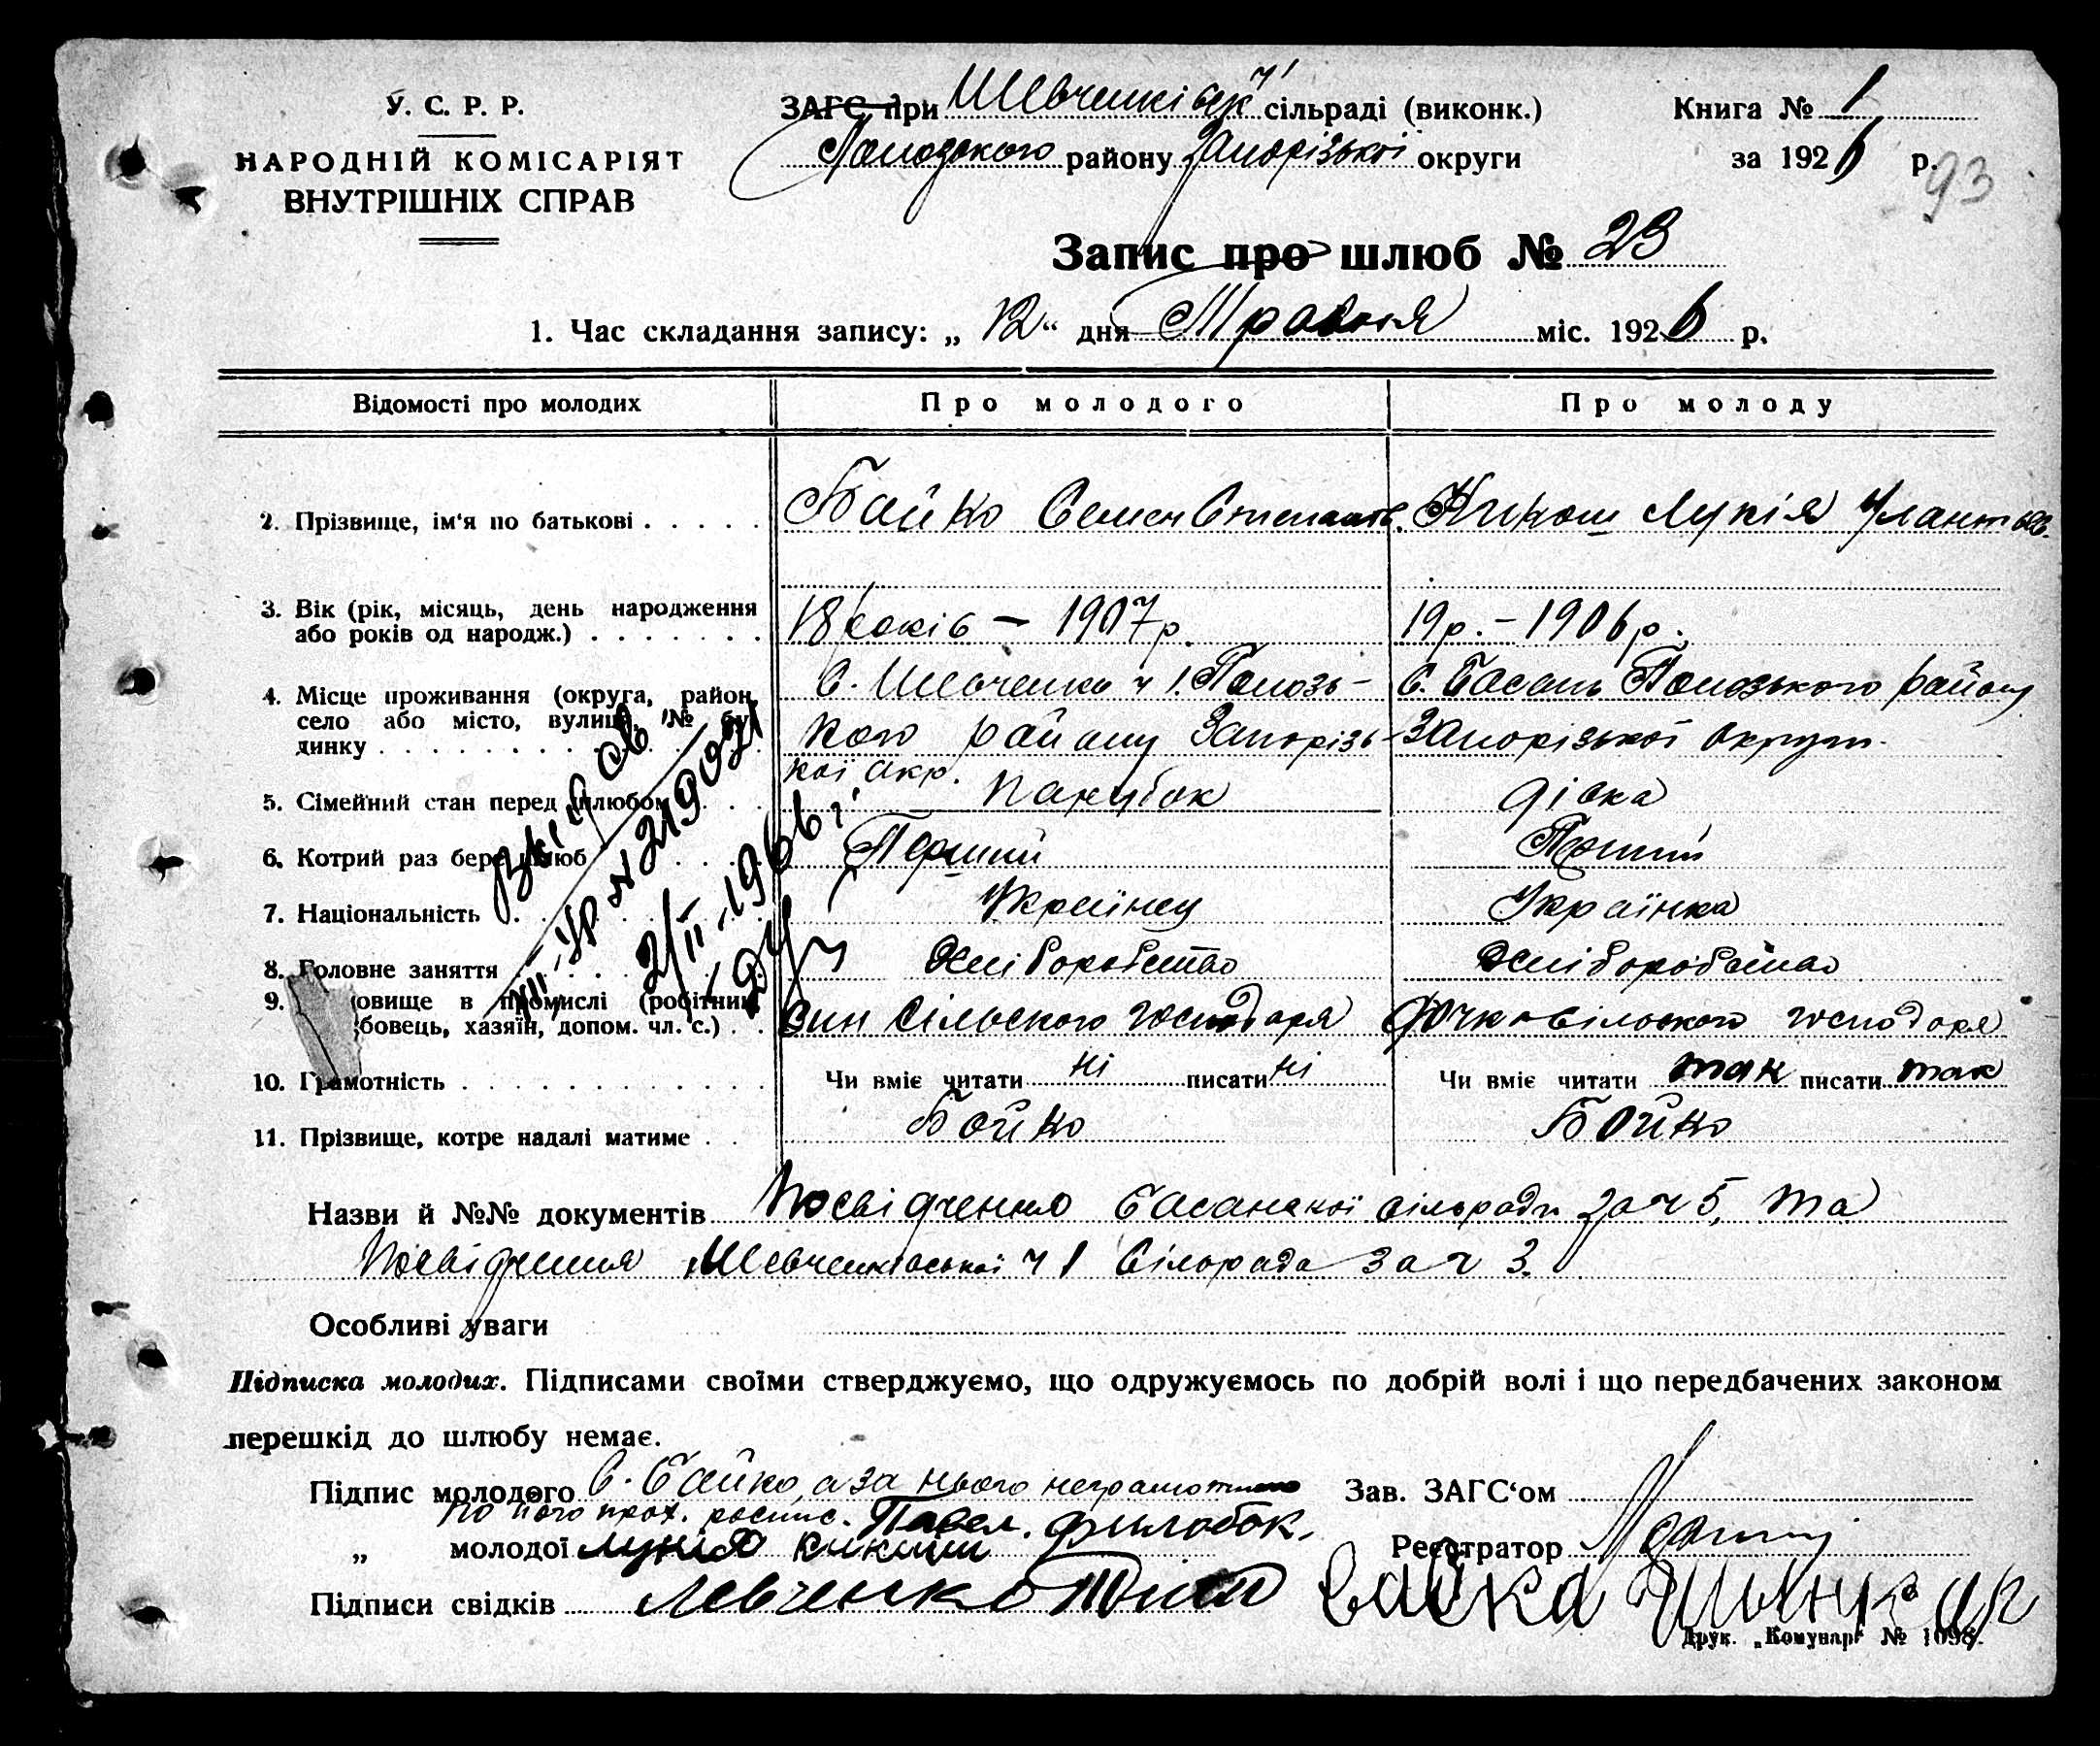 У. С. Р. Р.
НАРОДНІЙ КОМІСАРІЯТ
ВНУТРІШНІХ СПРАВ
ЗАГС при Шевченківск ч 1 сільраді (виконк.)
Пологського району Запорізької округи
Книга № 1
за 1926 р.
93
Запис про шлюб № 23
1. Час складання запису: „ 12 “ дня Травня міс. 1926 р.
Відомості про молодих Про молодого Про молоду
2. Прізвище, ім‘я по батькові Бойко Семен Степанов. Кикош Лукія
3. Вік (рік, місяць, день народження або років од народж.) 18 років – 1907 р. 19 р. – 1906 р.
4. Місце проживання (округа, район, село або місто, вулиця, № будинку
С. Шевченко ч 1. Пологзь- С. Басань Пологзького району
кого району Запорізь- Запорізької округи.
кої Окр.
5. Сімейний стан перед шлюбом парубок дівка
6. Котрий раз бере шлюб Перший Перший
7. Національність Українец Українка
8. Головне заняття Хліборобство Хліборобство
9. овище в промислі (робітник бовець, хазяїн, допом. чл. с.) Син Сільского господаря дочка Сільського господаря
10. Грамотність Чи вміє читати ні писати ні Чи вміє читати так писати так
11. Прізвище, котре надалі матиме Бойко Бойко
2/II-1966 г.
Назви й №№ документів Посвідчення Басанської сільради за ч 5, та
Посвідчення Шевченківської ч 1 Сільрада за ч 3.
Особливі уваги
Підписка молодих. Підписами своїми стверджуємо, що одружуємось по добрій волі і що передбачених законом
перешкід до шлюбу немає.
Підпис молодого С. Бойко, а за нього неграмотного
по його прох. роспис. Павел.
„ молодої Лукія Кикош
Зав. ЗАГС‘ом
Реєстратор
Підписи свідків Левченко
Друк. „Комунар“ № 1098.